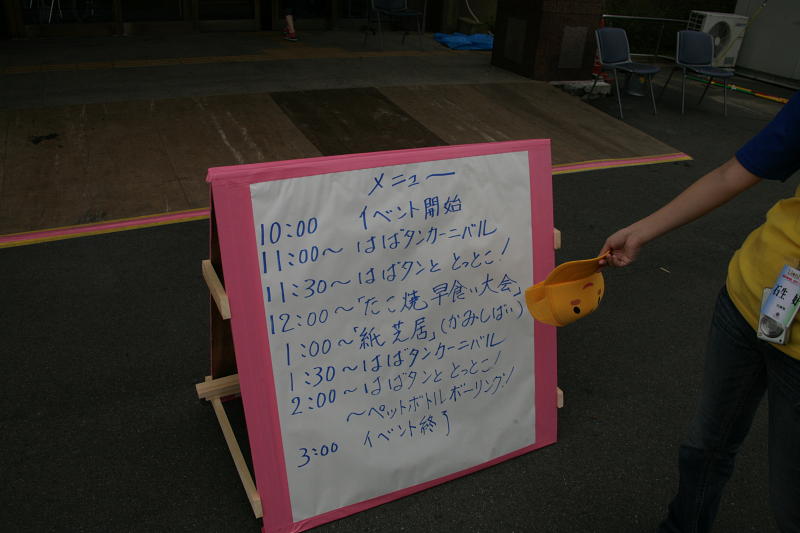 メニュー
10:00 イベント開始
11:00～ はばタンカーニバル
11:30～はばタンと とっとこ！
12:00～「たこ焼早食い大会」
1:00～「紙芝居」(かみしばい)
1:30～はばタンカーニバル
2:00～はばタンと とっとこ！
～ペットボトルボーリング！
3:00 イベント終了